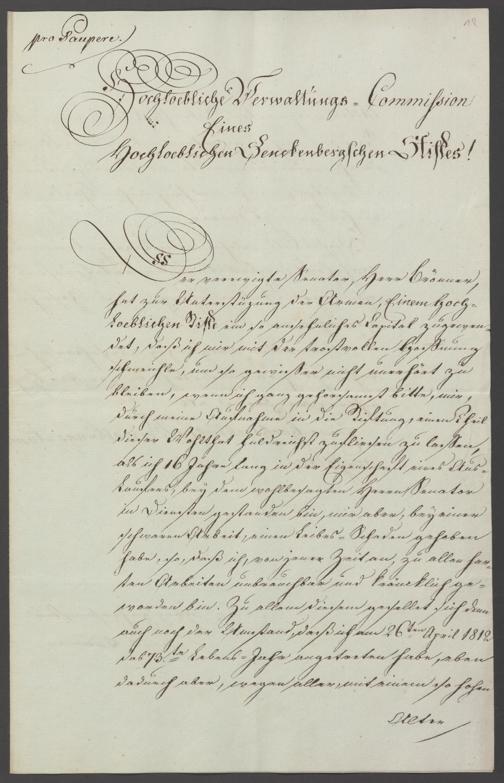 pro Paupere.
Hochloebliche Verwaltungs-Commission
Eines
Hochloeblichen Senckenbergschen Stiftes!
Der verewigte Senator, Herr Brönner,
hat zur Unterstüzung der Armen, Einem Hoch-
loeblichen Stift ein so ansehnliches Capital zugewen-
det, daß ich mir mit der trostvollen Hoffnung
schmeichle, um so gewisser nicht unerhört zu
bleiben, wenn ich ganz gehorsamst bitte, mir,
durch meine Aufnahme in die Stiftung, einen Theil
dieser Wohlthat huldreichst zufliesen zu lassen,
als ich 16 Jahre lang in der Eigenschaft eines Aus-
laufers, bey dem wohlbesagten Herrn Senator
in Diensten gestanden bin, mir aber, bey einer
schweren Arbeit, einen Leibes-Schaden gehoben
habe, so, daß ich, von jener Zeit an, zu allen har-
ten Arbeiten unbrauchbar und kräncklich ge-
worden bin. Zu allem diesem gesellet sich dann
auch noch der Umstand, daß ich am 26ten April 1812
das 73te Lebens-Jahr angetreten habe, eben
dadurch aber, wegen aller, mit einem so hohen
Alter